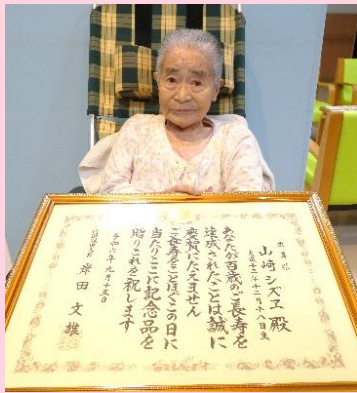 山崎シズヱ 殿
年十二月十八日生
あなたが百歳のご長寿を
達成されたことは誠に
慶祝にたえません
ご長寿をことほぐこの日に
当たりここに記念品を
贈りこれを祝します
令和 年九月十五日
内閣総理大臣 岸田文雄